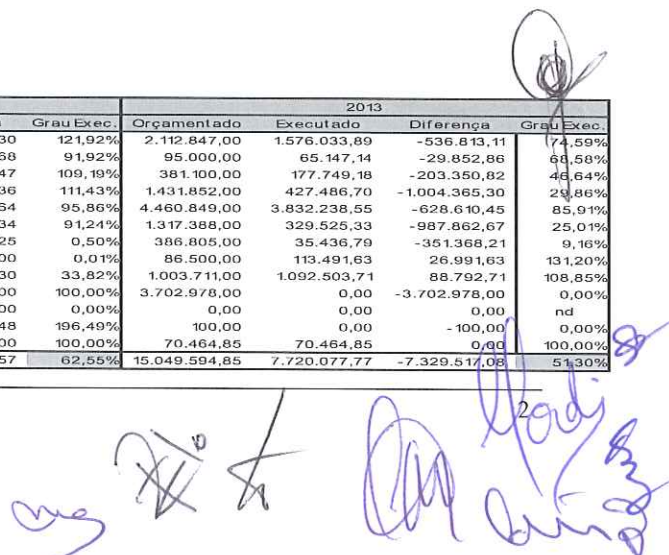 2013
Grau Exec. Orçamentado Executado Diferença Grau Exec.
30 121,92% 2.112.847,00 1.576.033,89 -536.813,11 74,59%
68 91,92% 95.000,00 65.147,14 -29.852,86 68,58%
47 109,19% 381.100,00 177.749,18 -203.350,82 46,64%
36 111,43% 1.431.852,00 427.486,70 -1.004.365,30 29,86%
64 95,86% 4.460.849,00 3.832.238,55 -628.610,45 85,91%
34 91,24% 1.317.388,00 329.525,33 -987.862,67 25,01%
25 0,50% 386.805,00 35.436,79 -351.368,21 9,16%
00 0,01% 86.500,00 113.491,63 26.991,63 131,20%
30 33,82% 1.003.711,00 1.092.503,71 88.792,71 108,85%
00 100,00% 3.702.978,00 0,00 -3.702.978,00 0,00%
00 0,00% 0,00 0,00 0,00 nd
48 196,49% 100,00 0,00 -100,00 0,00%
00 100,00% 70.464,85 70.464,85 0,00 100,00%
57 62,55% 15.049.594,85 7.720.077,77 -7.329.517,08 51,30%
2